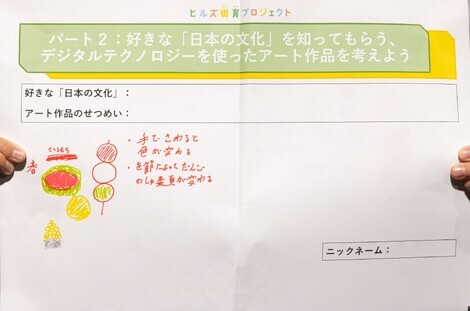 ヒルズ街育プロジェクト
パート2：好きな「日本の文化」を知ってもらう、
デジタルテクノロジーを使ったアート作品を考えよう
好きな「日本の文化」：
アート作品のせつめい：
・手でさわると
色が変わる
・季節によってだんご
のしゅ類が変わる
さくらもち
春
ニックネーム：